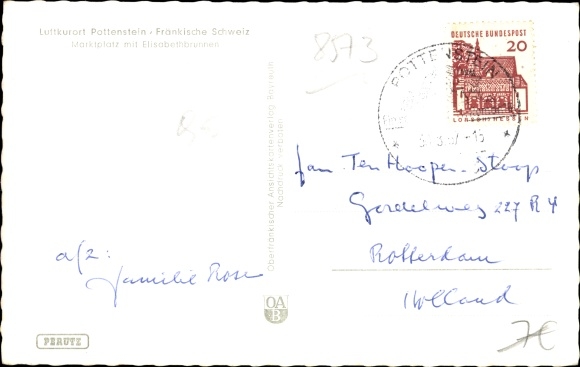 Luftkurort Pottenstein - Fränkische Schweiz
Marktplatz mit Elisabethbrunnen
8573
DEUTSCHE BUNDESPOST
20
LORSCH/HESSEN
POTTENSTEIN
Oberfränkischer Ansichtskartenverlag Bayreuth
Nachdruck verboten
Jan Ten Hoopen-Stoop
Gordelweg 227 R 4
Rotterdam
Holland
a/z:
familie Rose
OA
B
PERUTZ
7€